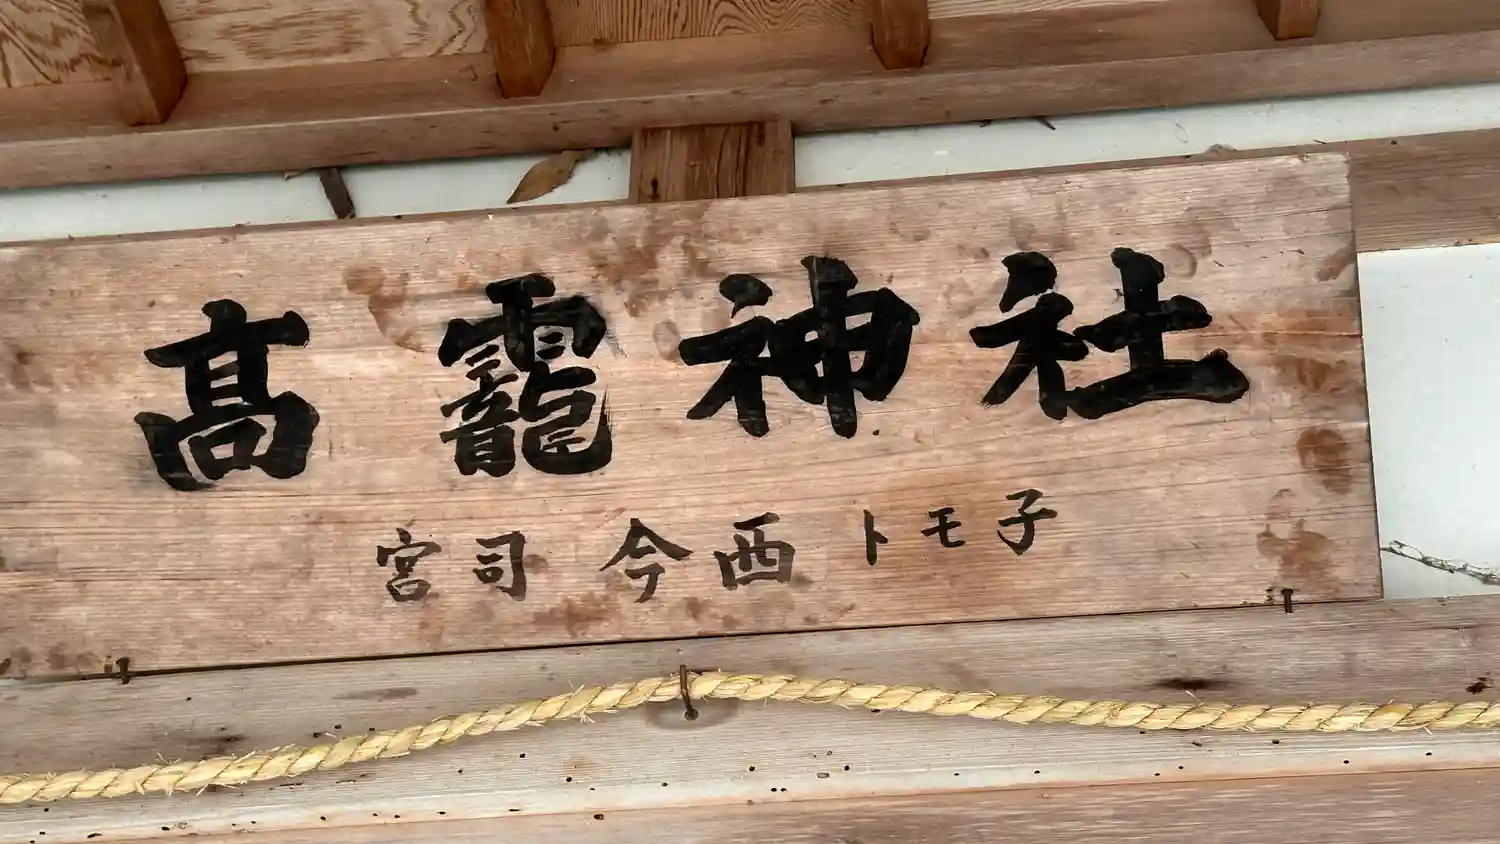 髙靇神社
宮司 今西トモ子